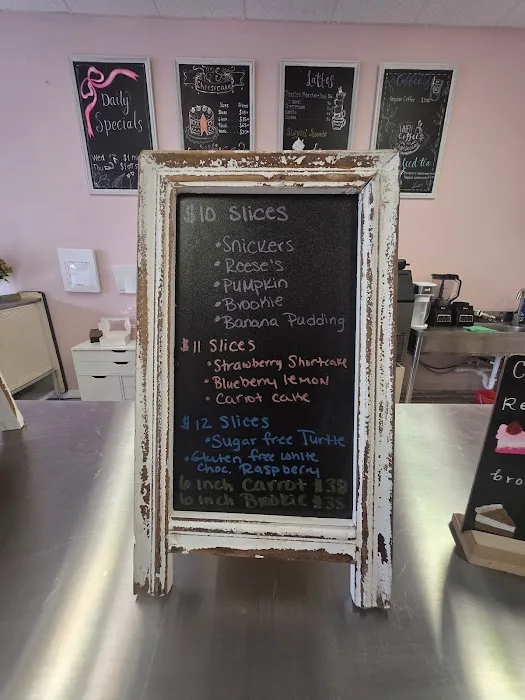 Daily
Specials
Wed
Cheesecake
Lattes
Regular Coffee
Iced tea
$10 Slices
•Snickers
•Reese's
•Pumpkin
•Brookie
•Banana Pudding
$11 Slices
•Strawberry Shortcake
•Blueberry lemon
•Carrot cake
$12 Slices
•Sugar free Turtle
•Gluten free white
Choc. Raspberry
6 inch Carrot $38
6 inch Brookie $35